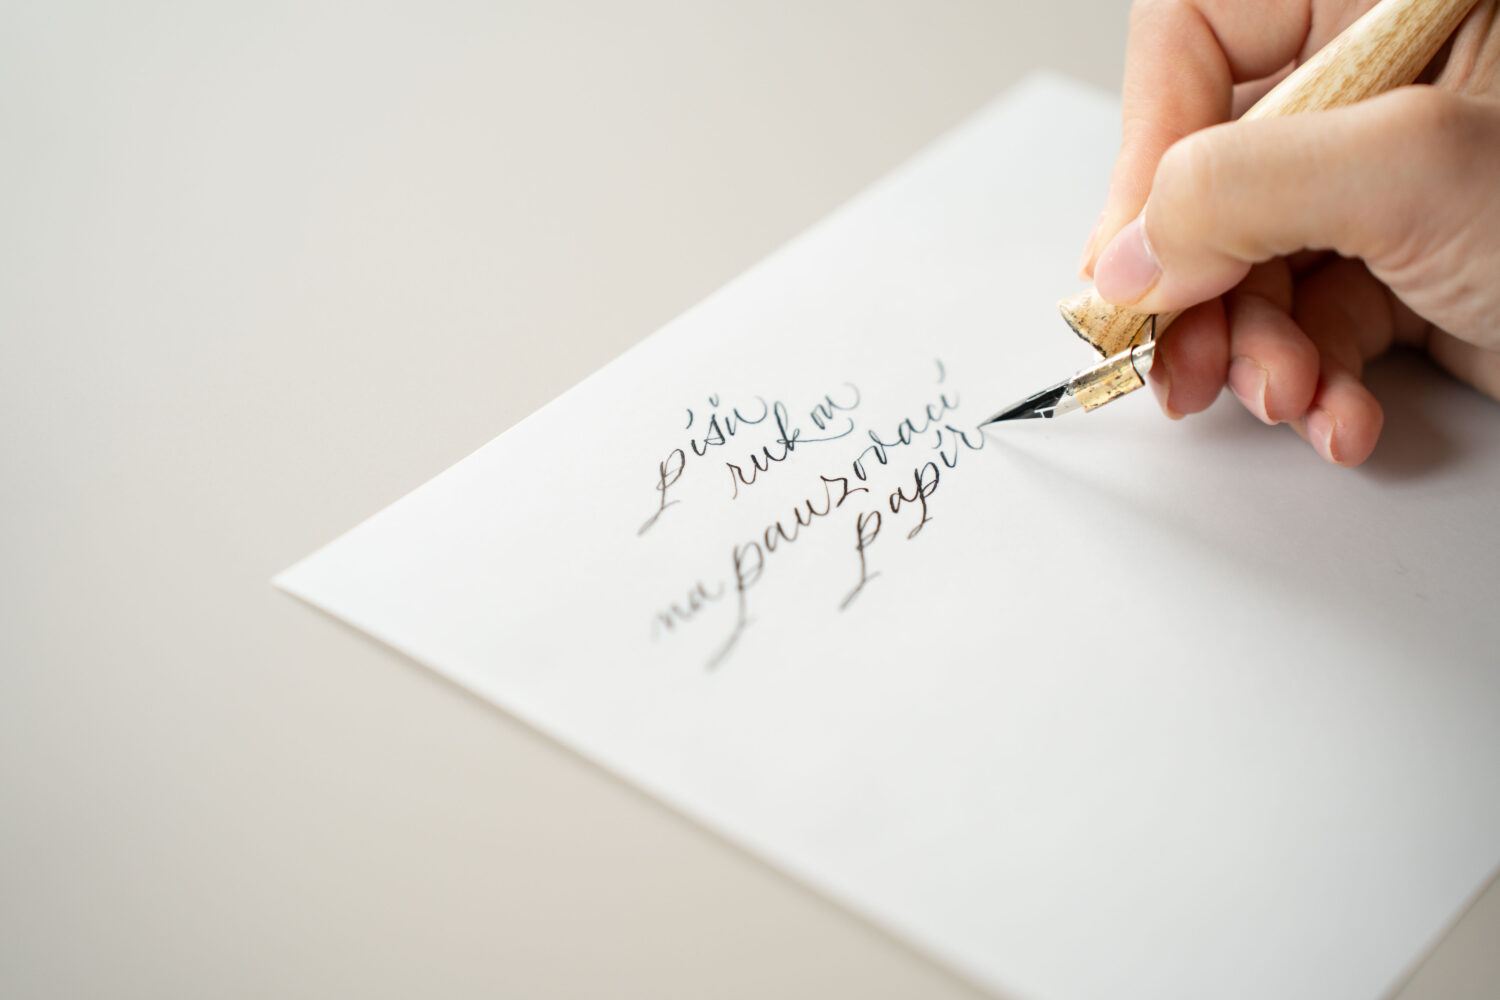 píšu
rukou
na pauzovací
papír